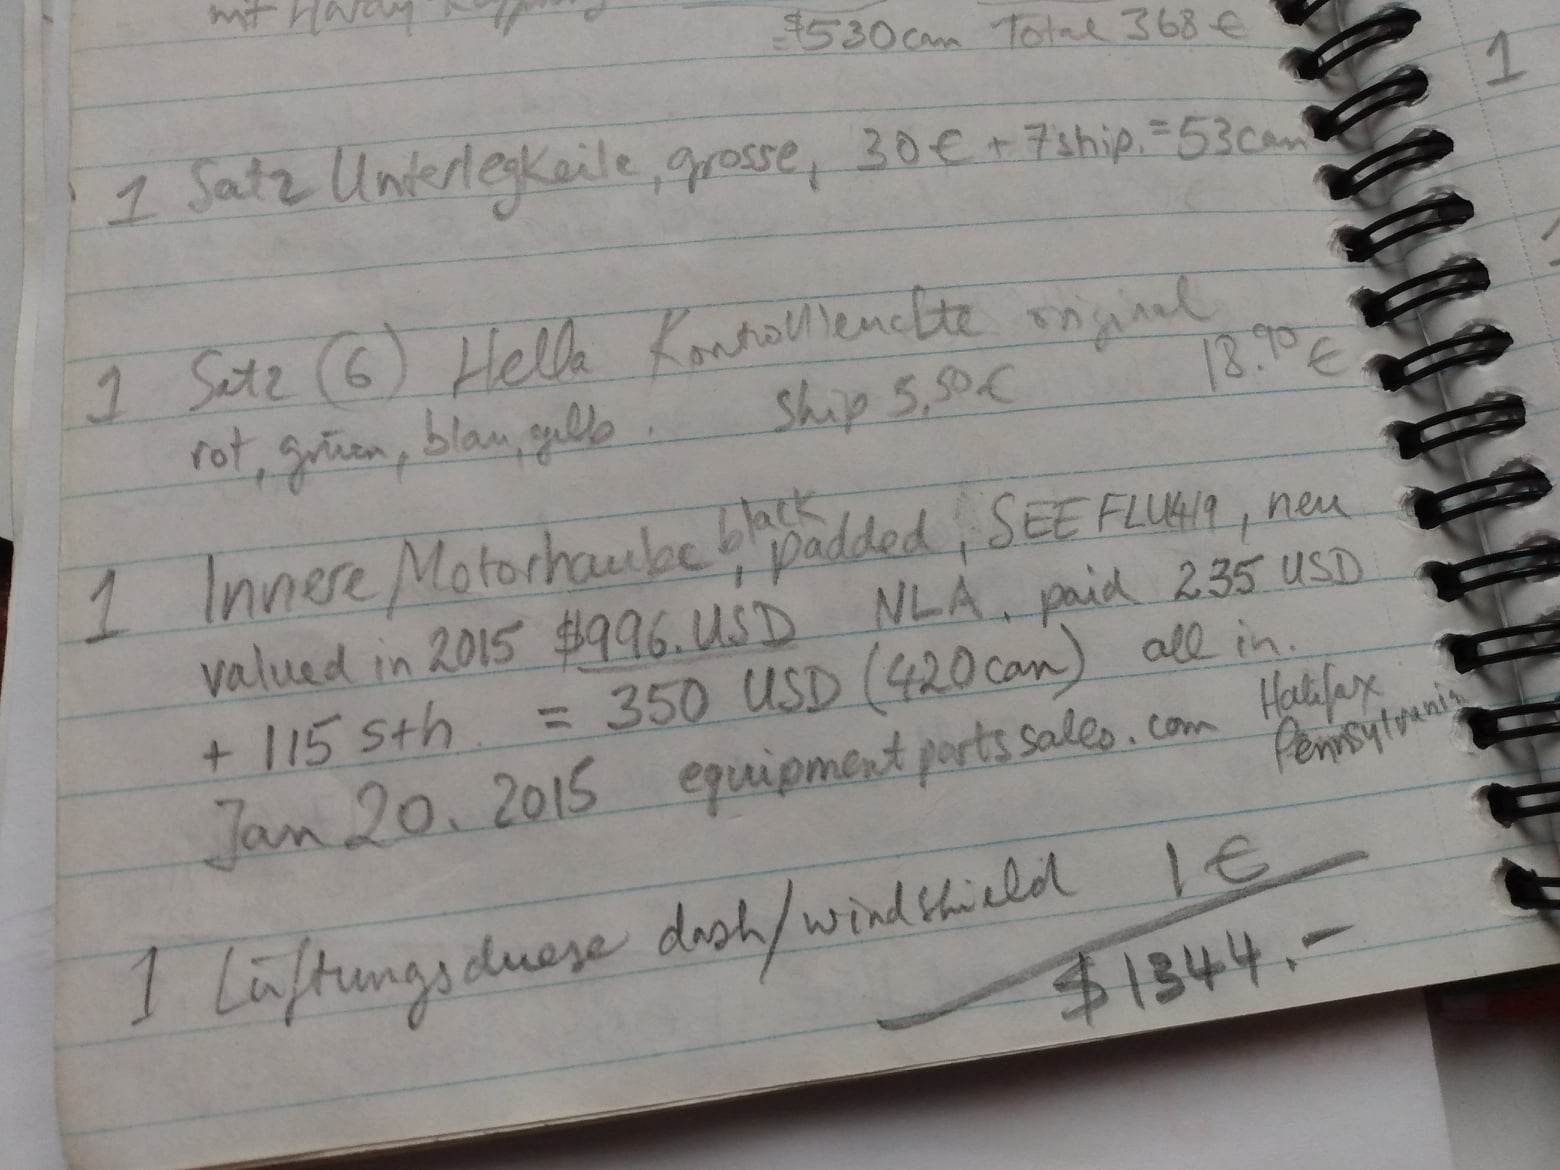 mt Hardy
=$530can Total 368 €
1 Satz Unterlegkeile, grosse, 30 € + 7 ship. = 53 can
1 Satz (6) Hella Kontrollleuchte original
rot, grün, blau, gelb. Ship 5,50 € 18.90 €
1 Innere Motorhaube, black padded, SEE FLU419, neu
valued in 2015 $996. USD NLA. paid 235 USD
+ 115 s+h = 350 USD (420 can) all in.
Jan 20. 2015 equipmentpartssales.com Halifax
Pennsylvania
1 Lüftungsduese dash/windshield 1 €
$1344.-
1